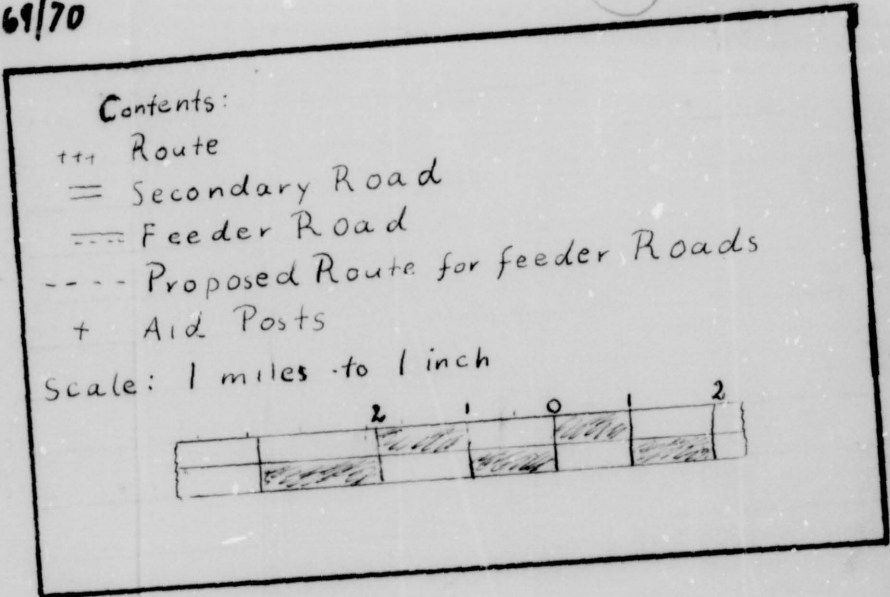 69/70
Contents:
+++ Route
Secondary Road
Feeder Road
---- Proposed Route for feeder Roads
+ Aid Posts
Scale: 1 miles to 1 inch
2 1 0 1 2